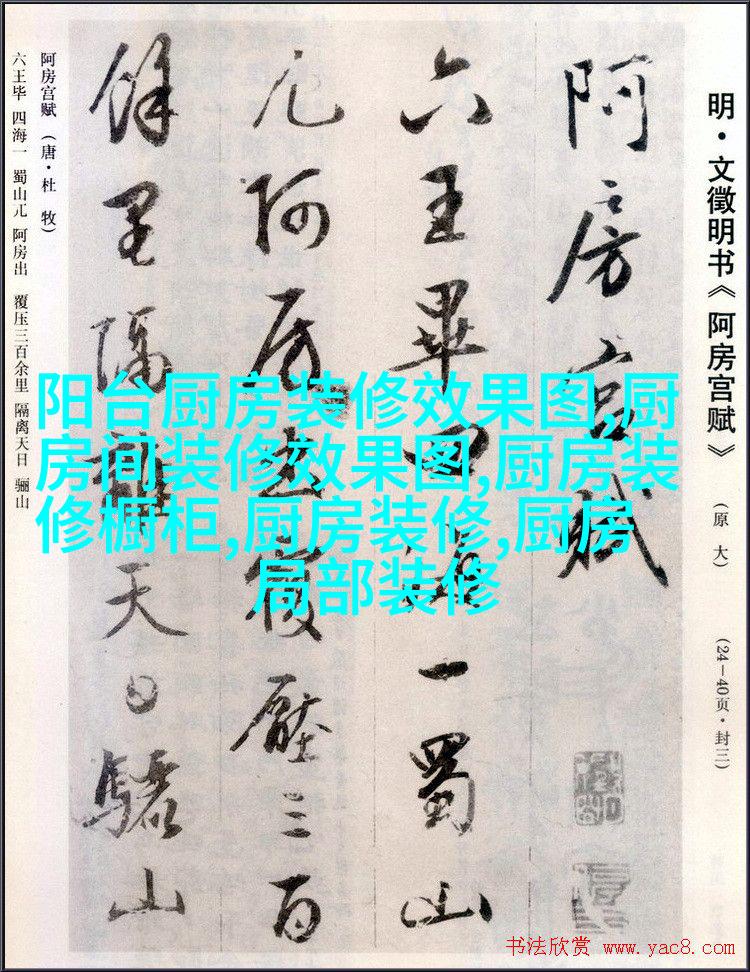 明·文徵明书《阿房宫赋》 （原大） （24—40页·封三）
阿房宫赋
六王畢四海一蜀山
兀阿房出覆壓三百
餘里隔離天日驪山
阿房宫赋（唐·杜 牧）
六王毕 四海一 蜀山兀 阿房出 覆压三百余里 隔离天日 骊山
阳台厨房装修效果图,厨
房间装修效果图,厨房装
修橱柜,厨房装修,厨房
局部装修
书法欣赏 www.yac8.com